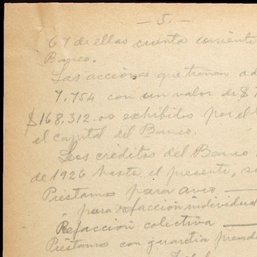 - 5. -
67 de ellas cuenta corriente
Banco.
Las acciones que
7.754 con un valor de $7
$168.512.00 exhibidos por el
el capital del Banco.
Los créditos del Banco
de 1926 hasta el presente, s
Préstamos para avio
" para refacción individual
Refacción colectiva
Préstamos con guardia prenda